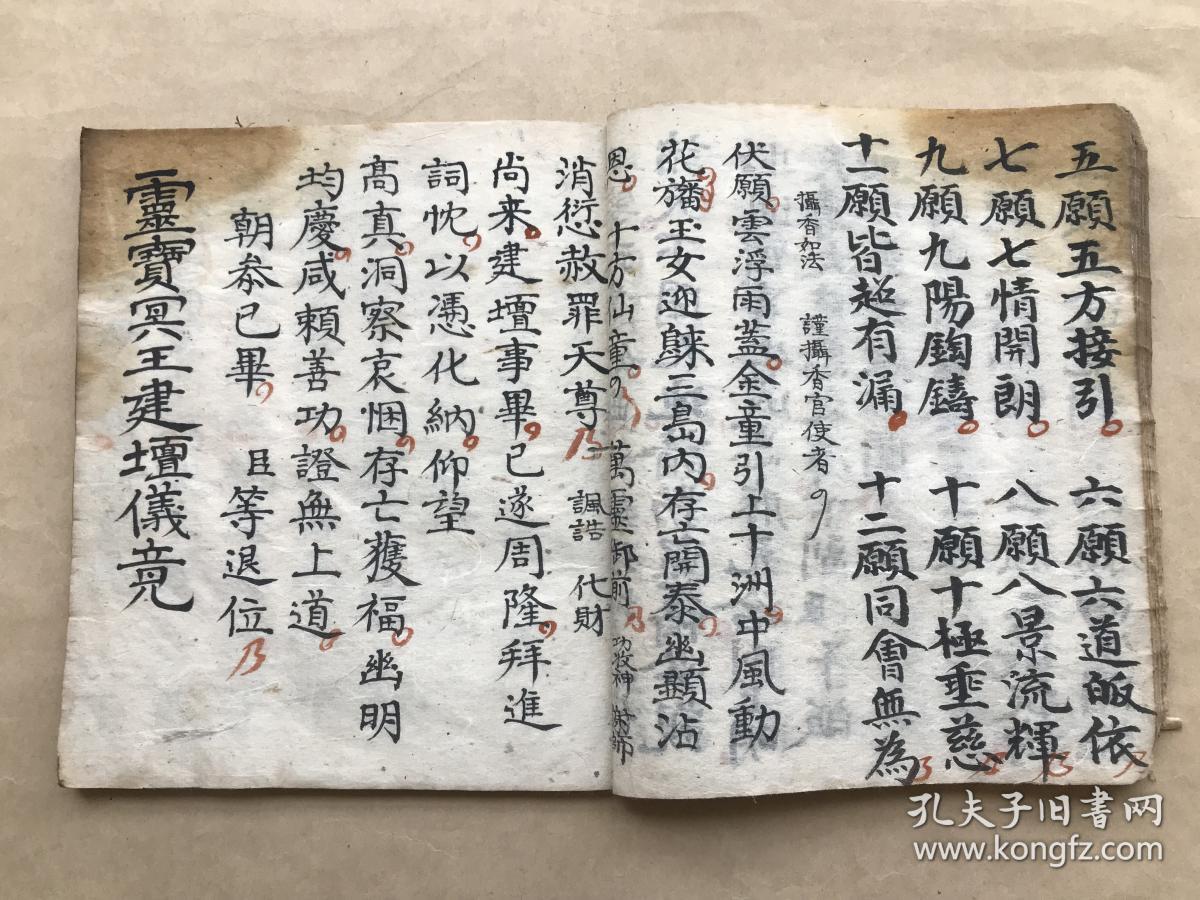 五願五方接引 六願六道皈依
七願七情開朗 八願八景流輝
九願九陽鋾鑄 十願十極垂慈
十一願皆超有漏 十二願同會無為
攝香如法 謹攝香官使者
伏願雲浮雨蓋金童引上十洲中風動
花旛玉女迎歸三島內存亡開泰幽顯沾
恩 十方仙童 萬靈御前 謝師
消愆赦罪天尊 諷誥 代財
尚来建壇事畢已遂周隆拜進
詞忱以憑化納仰望
高真洞察哀悃存亡獲福幽明
均慶咸賴善功證無上道
朝叅已畢 臣等退位
靈寶冥王建壇儀竟
孔夫子旧书网
www.kongfz.com